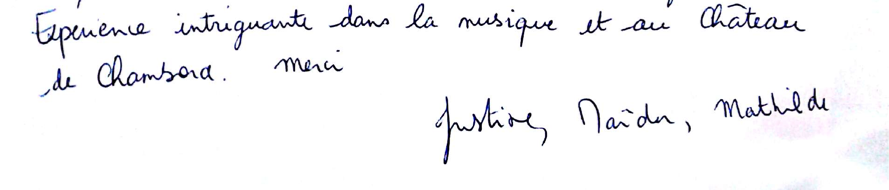 Experience intriguante dans la musique et au Château
de Chambord. Merci
Justine, Naïda, Mathilde